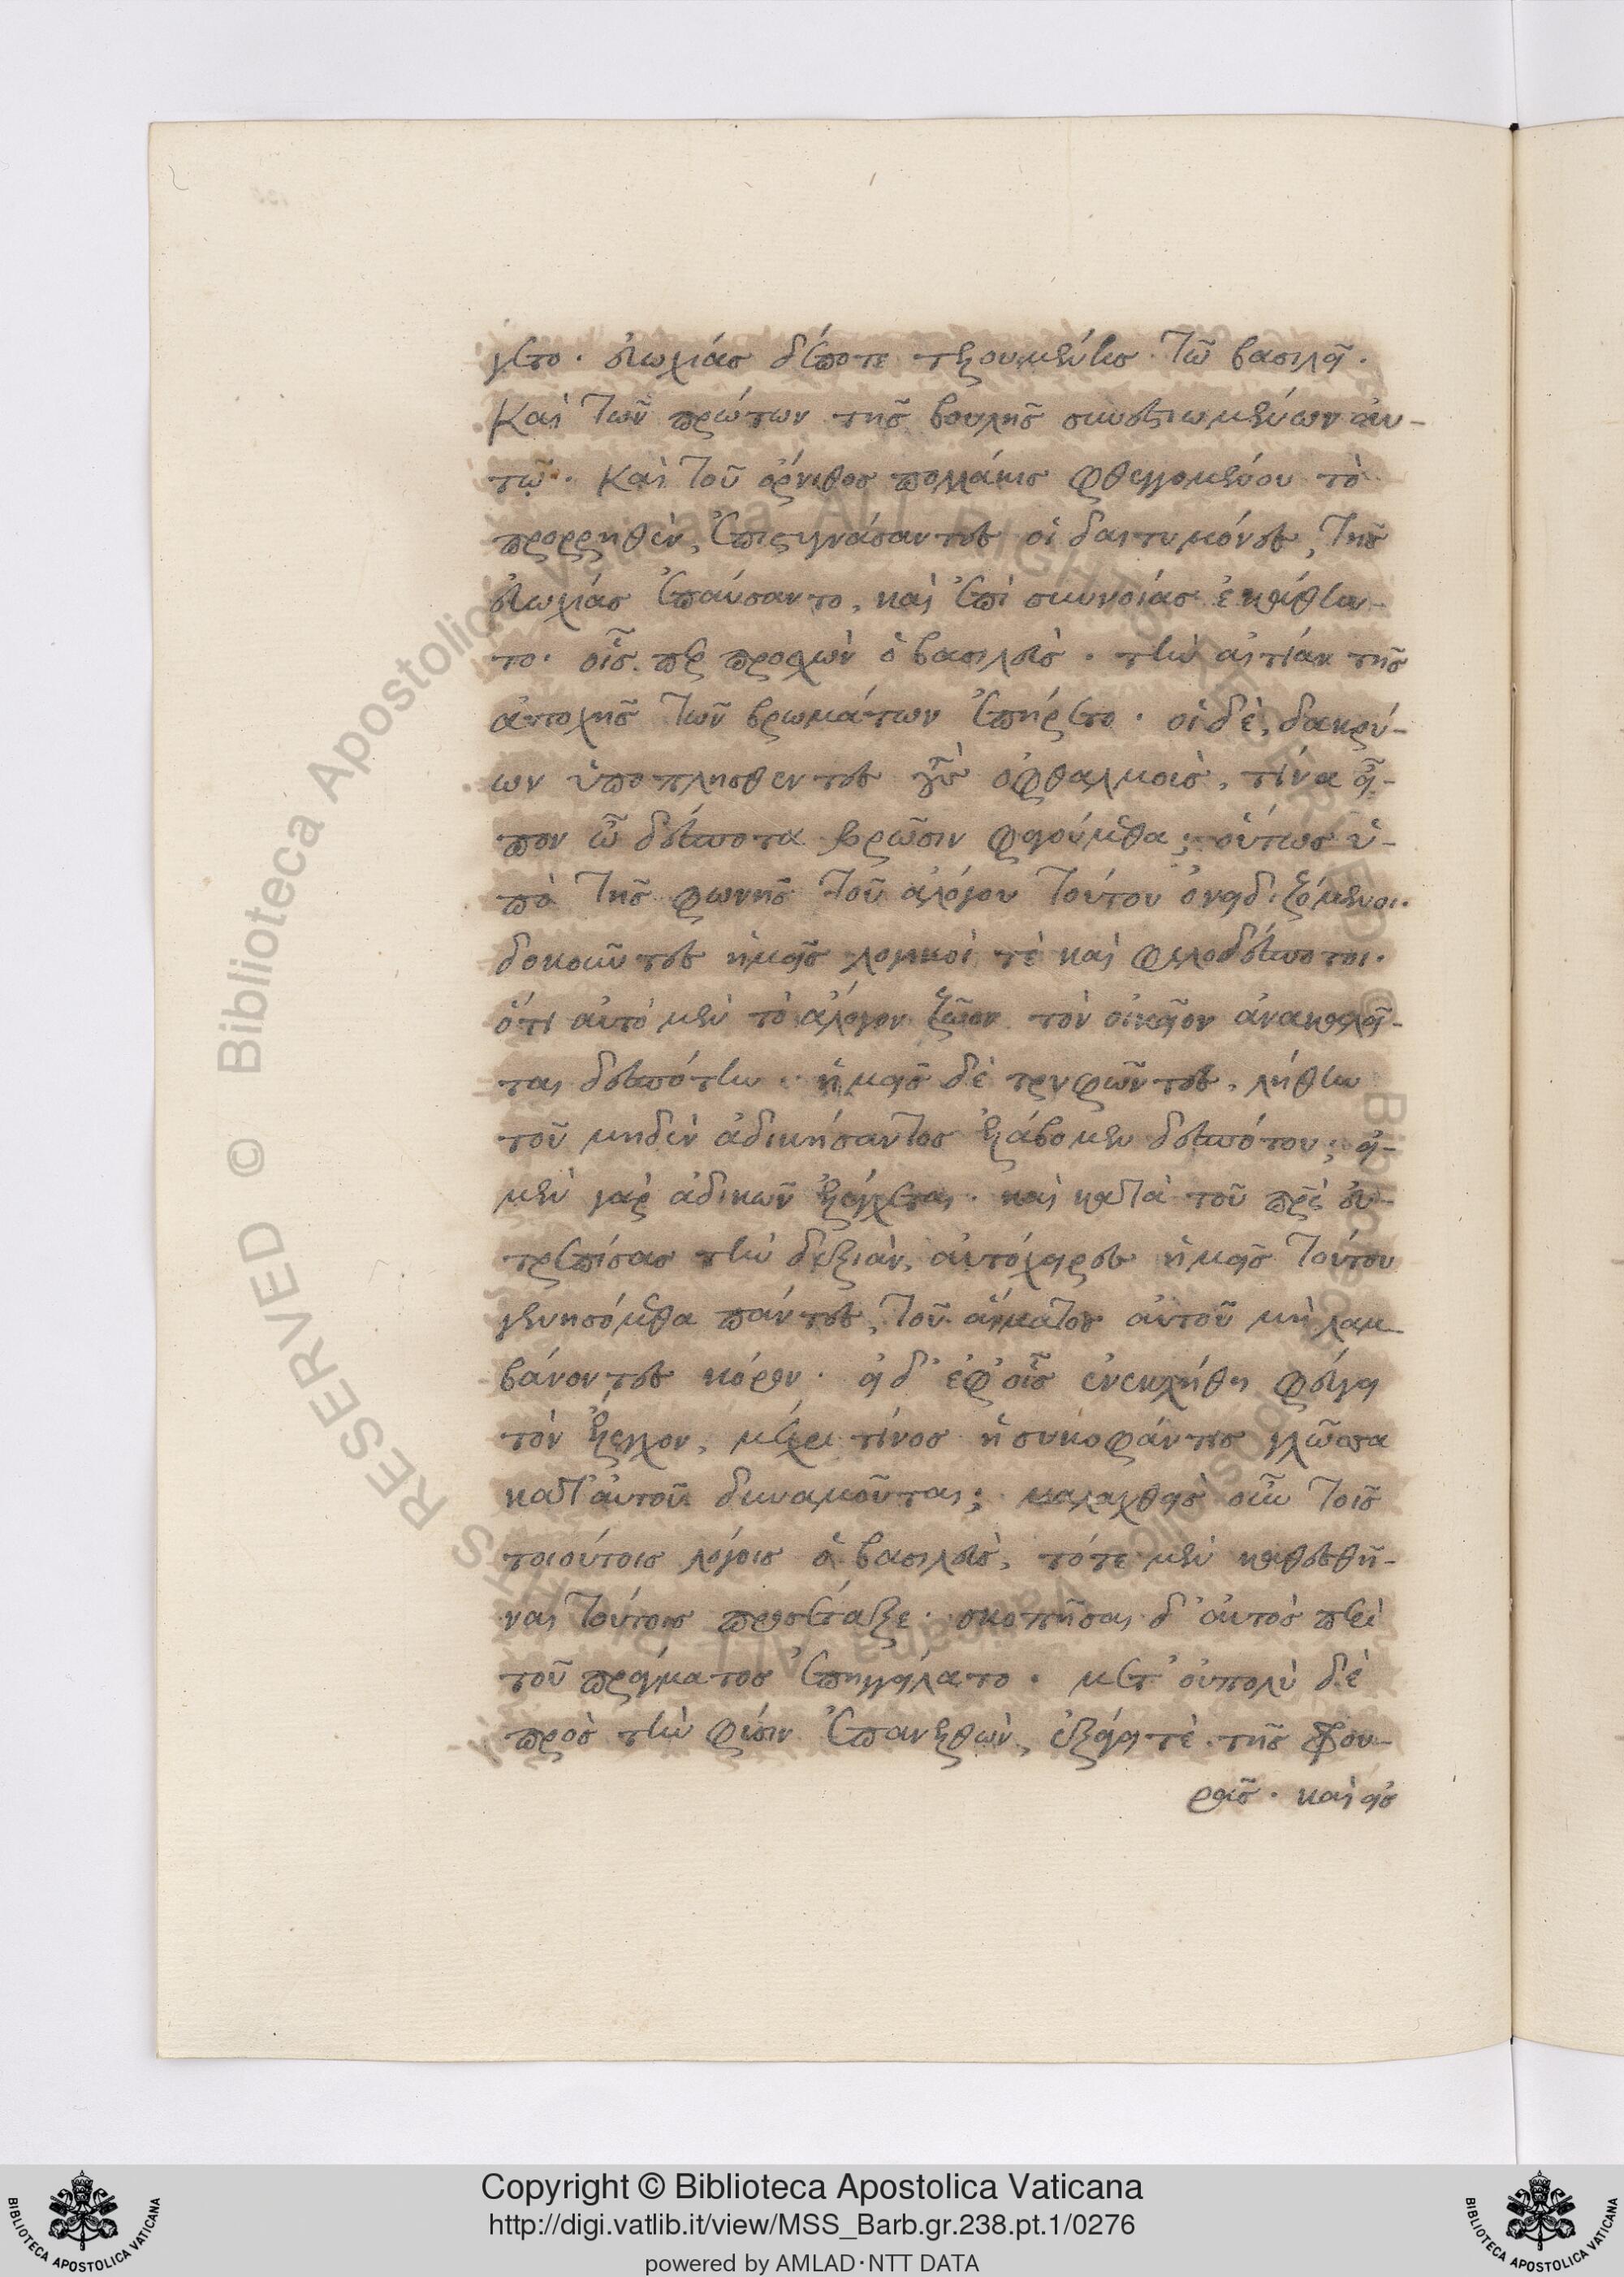 γετο. εὐωχίας δέποτε τελουμένης τῶ βασιλεῖ.
Καὶ τῶν πρώτων τῆς βουλῆς συνεστιωμένων αὐ-
τῷ. Καὶ τοῦ ὄρνιθος πολλάκις φθεγγομένου τὸ
προρρηθὲν, ἐπιστυγνάσαντες οἱ δαιτυμόνες, τῆς
εὐωχίας ἐπαύσαντο, καὶ ἐπὶ συννοίας ἐκάθην-
το. οἷς περ προσχὼν ὁ βασιλεὺς. τὴν αἰτίαν τῆς
ἀποχῆς τῶν βρωμάτων ἐπήρετο. οἱ δὲ, δακρύ-
ων ὑποπλησθέντες τοὺς ὀφθαλμοὺς, τίνα εἶ-
πον ὦ δέσποτα βρῶσιν φαγούμεθα; οὕτως ὑ-
πὸ τῆς φωνῆς τοῦ ἀλόγου τούτου ὀνειδιζόμενοι.
δοκοῦντες ἡμεῖς λογικοὶ τὲ καὶ φιλοδέσποτοι.
ὅτι αὐτὸ μὲν τὸ ἄλογον ζῶον τὸν οἰκεῖον ἀνακαλεῖ-
ται δεσπότην. ἡμεῖς δὲ τρυφῶντες, λήθην
τοῦ μηδὲν ἀδικήσαντος ἐλάβομεν δεσπότου; εἰ-
μὲν γὰρ ἀδικῶν ἐλέγχεται. καὶ κατὰ τοῦ πρς εὐ-
τρεπίσας τὴν δεξιὰν, αὐτόχειρες ἡμεῖς τούτου
γενησόμεθα πάντες, τοῦ αἵματος αὐτοῦ μὴ λαμ-
βάνοντες κόρον. εἰ δ' ἐφ' οἷς ἐνεκλήθη φεύγει
τὸν ἔλεγχον, μέχρι τίνος ἡ συκοφάντις γλῶσσα
κατ' αὐτοῦ δυναμοῦται; μαλαχθεὶς οὖν τοῖς
τοιούτοις λόγοις ὁ βασιλεὺς, τότε μὲν καθεσθῆ-
ναι τούτοις προσέταξε. σκοπῆσαι δ' αὐτὸς περὶ
τοῦ πράγματος ἐπηγγείλατο. μετ' οὐπολὺ δὲ
πρὸς τὴν φύσιν ἐπανελθὼν, ἐξάγει τὲ τῆς φρου-
ρᾶς. καὶ εἰς
Copyright © Biblioteca Apostolica Vaticana
http://digi.vatlib.it/view/MSS_Barb.gr.238.pt.1/0276
powered by AMLAD·NTT DATA